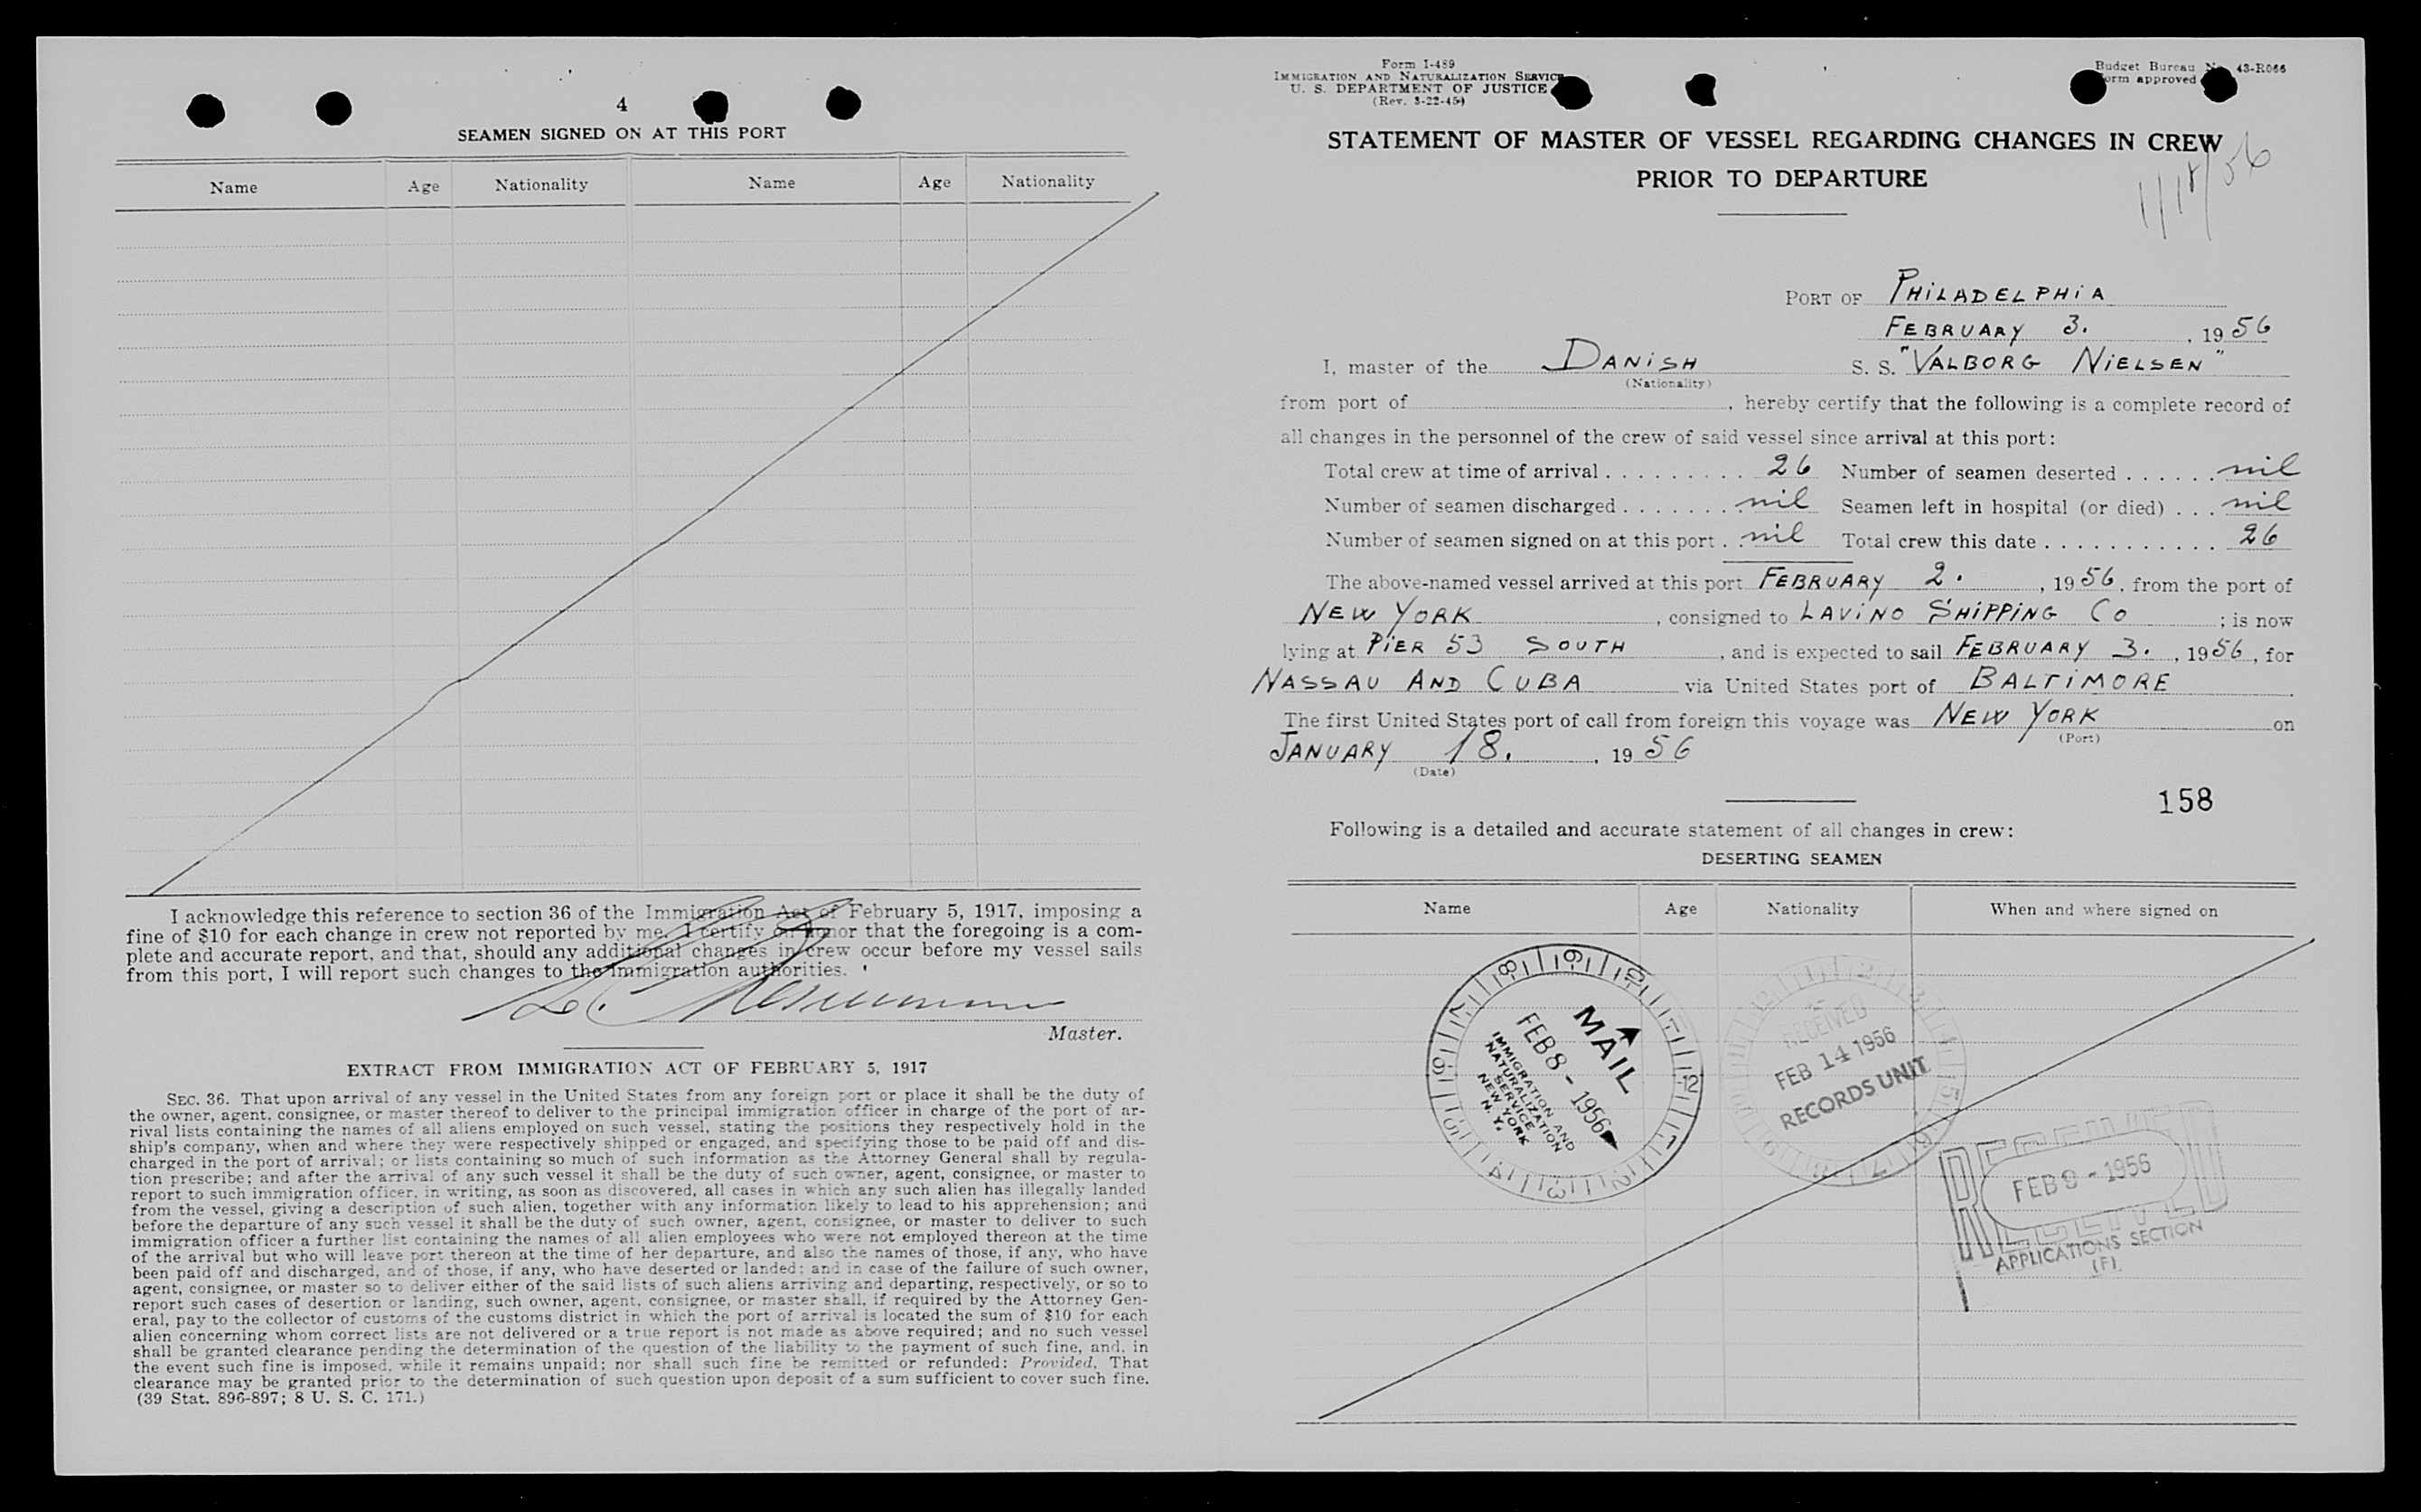 4
SEAMEN SIGNED ON AT THIS PORT
Name Age Nationality Name Age Nationality
I acknowledge this reference to section 36 of the Immigration Act of February 5, 1917, imposing a
fine of $10 for each change in crew not reported by me. I certify on honor that the foregoing is a com-
plete and accurate report, and that, should any additional changes in crew occur before my vessel sails
from this port, I will report such changes to the immigration authorities.
Master.
EXTRACT FROM IMMIGRATION ACT OF FEBRUARY 5, 1917
SEC. 36. That upon arrival of any vessel in the United States from any foreign port or place it shall be the duty of
the owner, agent, consignee, or master thereof to deliver to the principal immigration officer in charge of the port of ar-
rival lists containing the names of all aliens employed on such vessel, stating the positions they respectively hold in the
ship's company, when and where they were respectively shipped or engaged, and specifying those to be paid off and dis-
charged in the port of arrival; or lists containing so much of such information as the Attorney General shall by regula-
tion prescribe; and after the arrival of any such vessel it shall be the duty of such owner, agent, consignee, or master to
report to such immigration officer, in writing, as soon as discovered, all cases in which any such alien has illegally landed
from the vessel, giving a description of such alien, together with any information likely to lead to his apprehension; and
before the departure of any such vessel it shall be the duty of such owner, agent, consignee, or master to deliver to such
immigration officer a further list containing the names of all alien employees who were not employed thereon at the time
of the arrival but who will leave port thereon at the time of her departure, and also the names of those, if any, who have
been paid off and discharged, and of those, if any, who have deserted or landed; and in case of the failure of such owner,
agent, consignee, or master so to deliver either of the said lists of such aliens arriving and departing, respectively, or so to
report such cases of desertion or landing, such owner, agent, consignee, or master shall, if required by the Attorney Gen-
eral, pay to the collector of customs of the customs district in which the port of arrival is located the sum of $10 for each
alien concerning whom correct lists are not delivered or a true report is not made as above required; and no such vessel
shall be granted clearance pending the determination of the question of the liability to the payment of such fine, and, in
the event such fine is imposed, while it remains unpaid; nor shall such fine be remitted or refunded: Provided, That
clearance may be granted prior to the determination of such question upon deposit of a sum sufficient to cover such fine.
(39 Stat. 896-897; 8 U. S. C. 171.)
Form I-489
IMMIGRATION AND NATURALIZATION SERVICE
U. S. DEPARTMENT OF JUSTICE
(Rev. 3-22-45)
Budget Bureau No. 43-R066
Form approved
STATEMENT OF MASTER OF VESSEL REGARDING CHANGES IN CREW
PRIOR TO DEPARTURE
1/18/56
PORT OF PHILADELPHIA
FEBRUARY 3. , 1956
I, master of the DANISH S. S. "VALBORG NIELSEN"
(Nationality)
from port of , hereby certify that the following is a complete record of
all changes in the personnel of the crew of said vessel since arrival at this port:
Total crew at time of arrival . . . . . . . . . 26 Number of seamen deserted . . . . . . nil
Number of seamen discharged . . . . . . . . nil Seamen left in hospital (or died) . . . nil
Number of seamen signed on at this port . . nil Total crew this date . . . . . . . . . . . 26
The above-named vessel arrived at this port FEBRUARY 2. , 1956, from the port of
NEW YORK , consigned to LAVINO SHIPPING CO ; is now
lying at PIER 53 SOUTH , and is expected to sail FEBRUARY 3. , 1956, for
NASSAU AND CUBA via United States port of BALTIMORE .
The first United States port of call from foreign this voyage was NEW YORK on
(Port)
JANUARY 18. , 1956
(Date)
158
Following is a detailed and accurate statement of all changes in crew:
DESERTING SEAMEN
Name Age Nationality When and where signed on
MAIL
FEB 8 - 1956
IMMIGRATION AND
NATURALIZATION
SERVICE
NEW YORK
N. Y.
RECEIVED
FEB 14 1956
RECORDS UNIT
RECEIVED
FEB 8 - 1956
APPLICATIONS SECTION
(F)